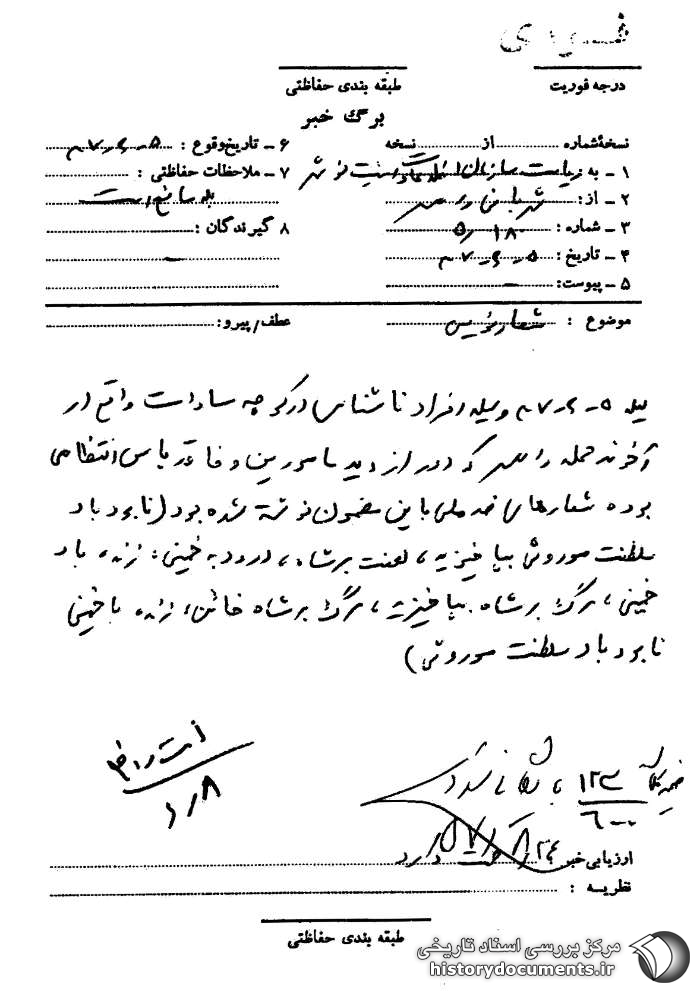 درجه فوریت
طبقه بندی حفاظتی
برگ خبر
نسخهٔ شماره از نسخه
۱ ـ به ریاست سازمان اطلاعات و امنیت نوشهر
۲ ـ از: شهربانی رامسر
۳ ـ شماره : ۱۸۰ـ۵
۴ ـ تاریخ :
۵ ـ پیوست: ـ
۶ ـ تاریخ وقوع :
۷ ـ ملاحظات حفاظتی :
بلامانع است
۸ گیرندگان :
موضوع : شعارنویسی
عطف/پیرو:
وسیله افراد ناشناس در کوچه سادات واقع در
آخوند محله رامسر که دور از دید مامورین و فاقد پاس انتظامی
بوده شعارهای ضد ملی باین مضمون نوشته شده بود (نابود باد
سلطنت موروثی بپا خیزید، لعنت بر شاه، درود به خمینی: زنده باد
خمینی، مرگ بر شاه. بپا خیزید، مرگ بر شاه خائن، زنده باد خمینی
نابود باد سلطنت موروثی)
ارزیابی خبر
نظریه :
طبقه بندی حفاظتی
مرکز بررسی اسناد تاریخی
historydocuments.ir